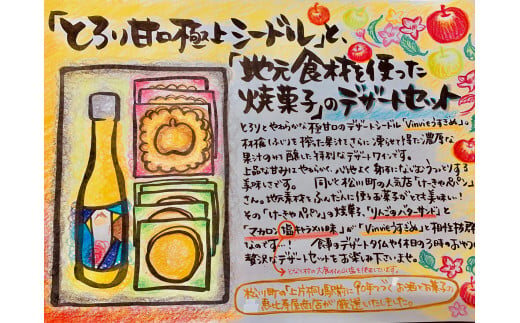 「とろり甘口極上シードル」と、
「地元食材を使った
焼菓子」のデザートセット
とろりとやわらかな極甘口のデザートシードル「Vinvieうすきぬ」。
林檎(ふじ)を搾った果汁をさらに凍らせて得た濃厚な
果汁のみで醸した特別なデザートワインです。
上品な甘みに
美味しさです。 同じく松川町の人気店「けーきやPePin」
さん。地元素材をふんだんに使ったお菓子がとても美味しい!
その「けーきやPePin」の焼菓子、「りんごのバターサンド」と
「マカロン(塩キャラメル味)」が「Vinvieうすきぬ」と相性抜群
なのです…! 食事のデザートタイムや休日の3時のおやつに
贅沢なデザートセットをお楽しみ下さいませ。
松川町の「上片桐」駅前に90年つづく お酒とお菓子の
恵比寿屋商店が厳選いたしました。